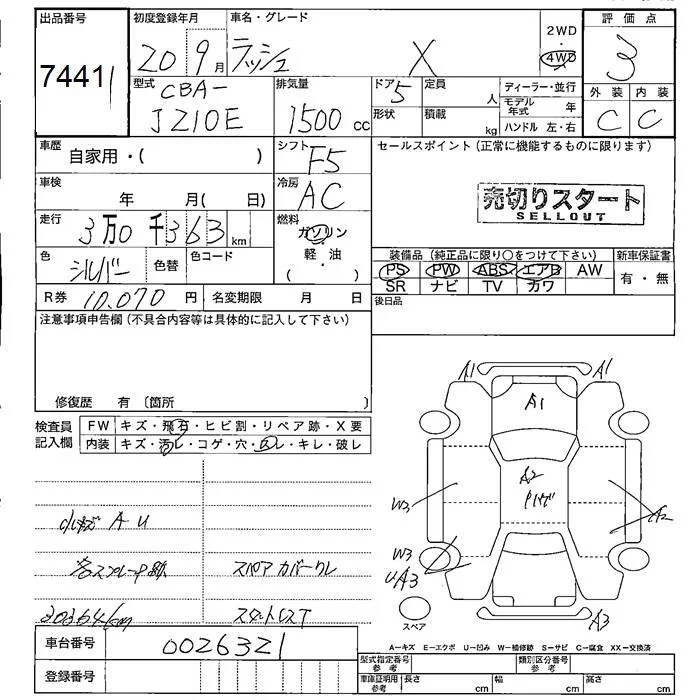 出品番号
7441
初度登録年月
20 9月
車名・グレード
ラッシュ X
2WD
・
4WD
評価点
3
外装 内装
C C
型式
CBA-
J210E
排気量
1500 cc
ドア 5
定員 人
形状
積載 kg
ディーラー・並行
モデル年式 年
ハンドル 左・右
車歴
自家用・( )
シフト
F5
セールスポイント (正常に機能するものに限ります)
売切りスタート
SELLOUT
車検
年 月( 日)
冷房
AC
走行
3万0千363km
燃料
ガソリン
軽・油
( ・ )
色
シルバー
色替
色コード
装備品 (純正品に限り〇をつけて下さい)
PS PW ABS エアB AW
SR ナビ TV カワ
新車保証書
有・無
R券 10,070円
名変期限 月 日
後日品
注意事項申告欄 (不具合内容等は具体的に記入して下さい)
修復歴 有 〔箇所 〕
検査員
記入欄
FW キズ・飛石・ヒビ割・リペア跡・X要
内装 キズ・汚レ・コゲ・穴・スレ・キレ・破レ
小キズ A U
各スプレー跡
スペアカバークレ
30364km
A1 A1
A1
A2
W3
A2
W3
UA3
A3
スペア
車台番号
0026321
登録番号
A―キズ E―エクボ U―凹み W―補修跡 S―サビ C―腐食 XX―交換済
型式指定番号
参考
類別区分番号
参考
車庫証明用
参考
長さ cm 幅 cm 高さ cm